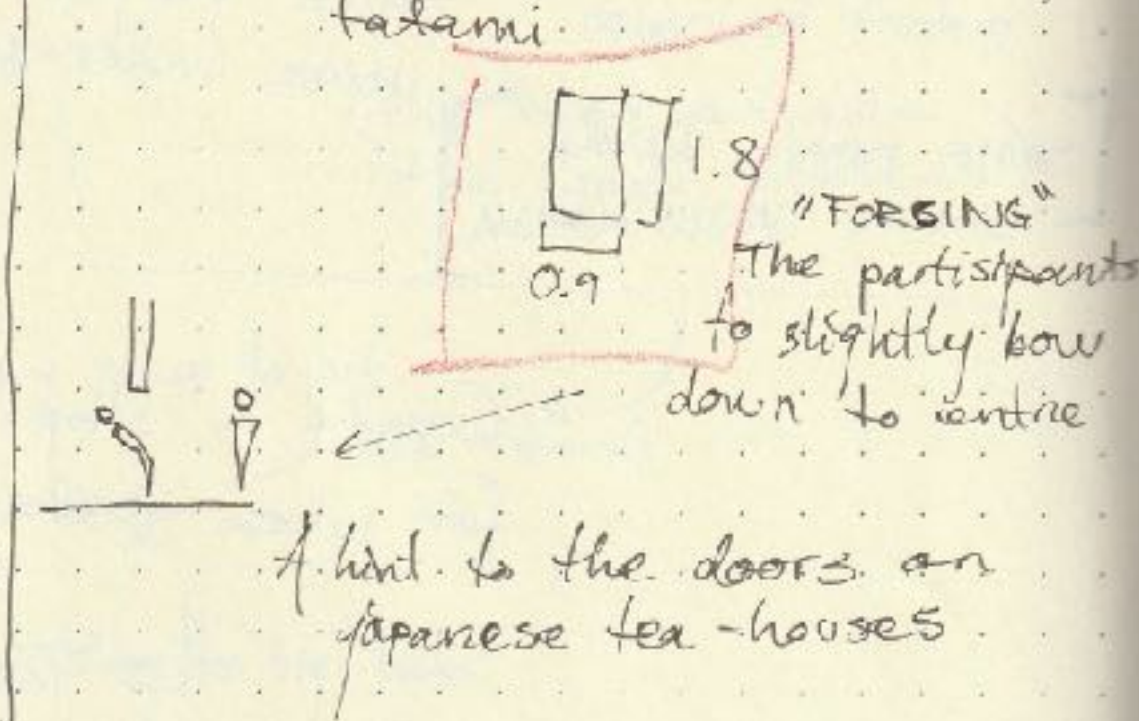 tatami
1.8
0.9
"FORSING"
The partisipants
to slightly bow
down to entire
A hint to the doors on
japanese tea-houses